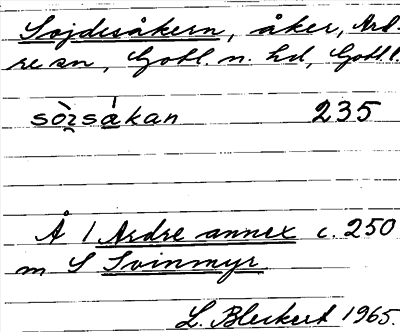 Sojdesåkern, åker, Ard-
re sn, Gotl. n. hd, Gotl. l.
sòʒsåkan 235
Å 1 Ardre annex c. 250
m S Svinmyr
L. Bleckert 1965.